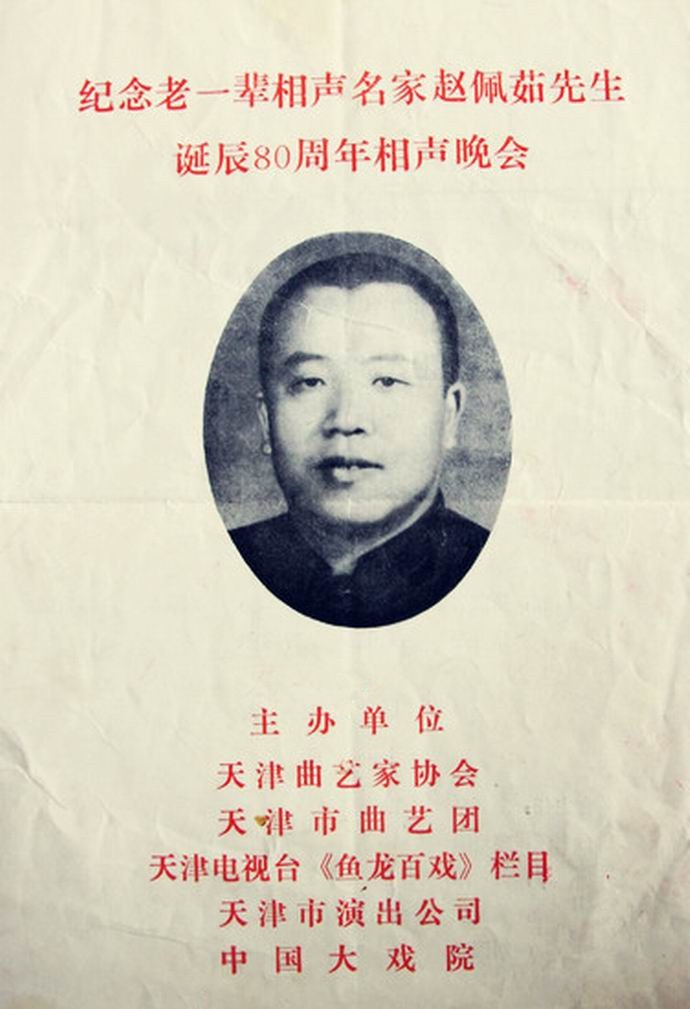 纪念老一辈相声名家赵佩茹先生
诞辰80周年相声晚会
主办单位
天津曲艺家协会
天津市曲艺团
天津电视台《鱼龙百戏》栏目
天津市演出公司
中国大戏院